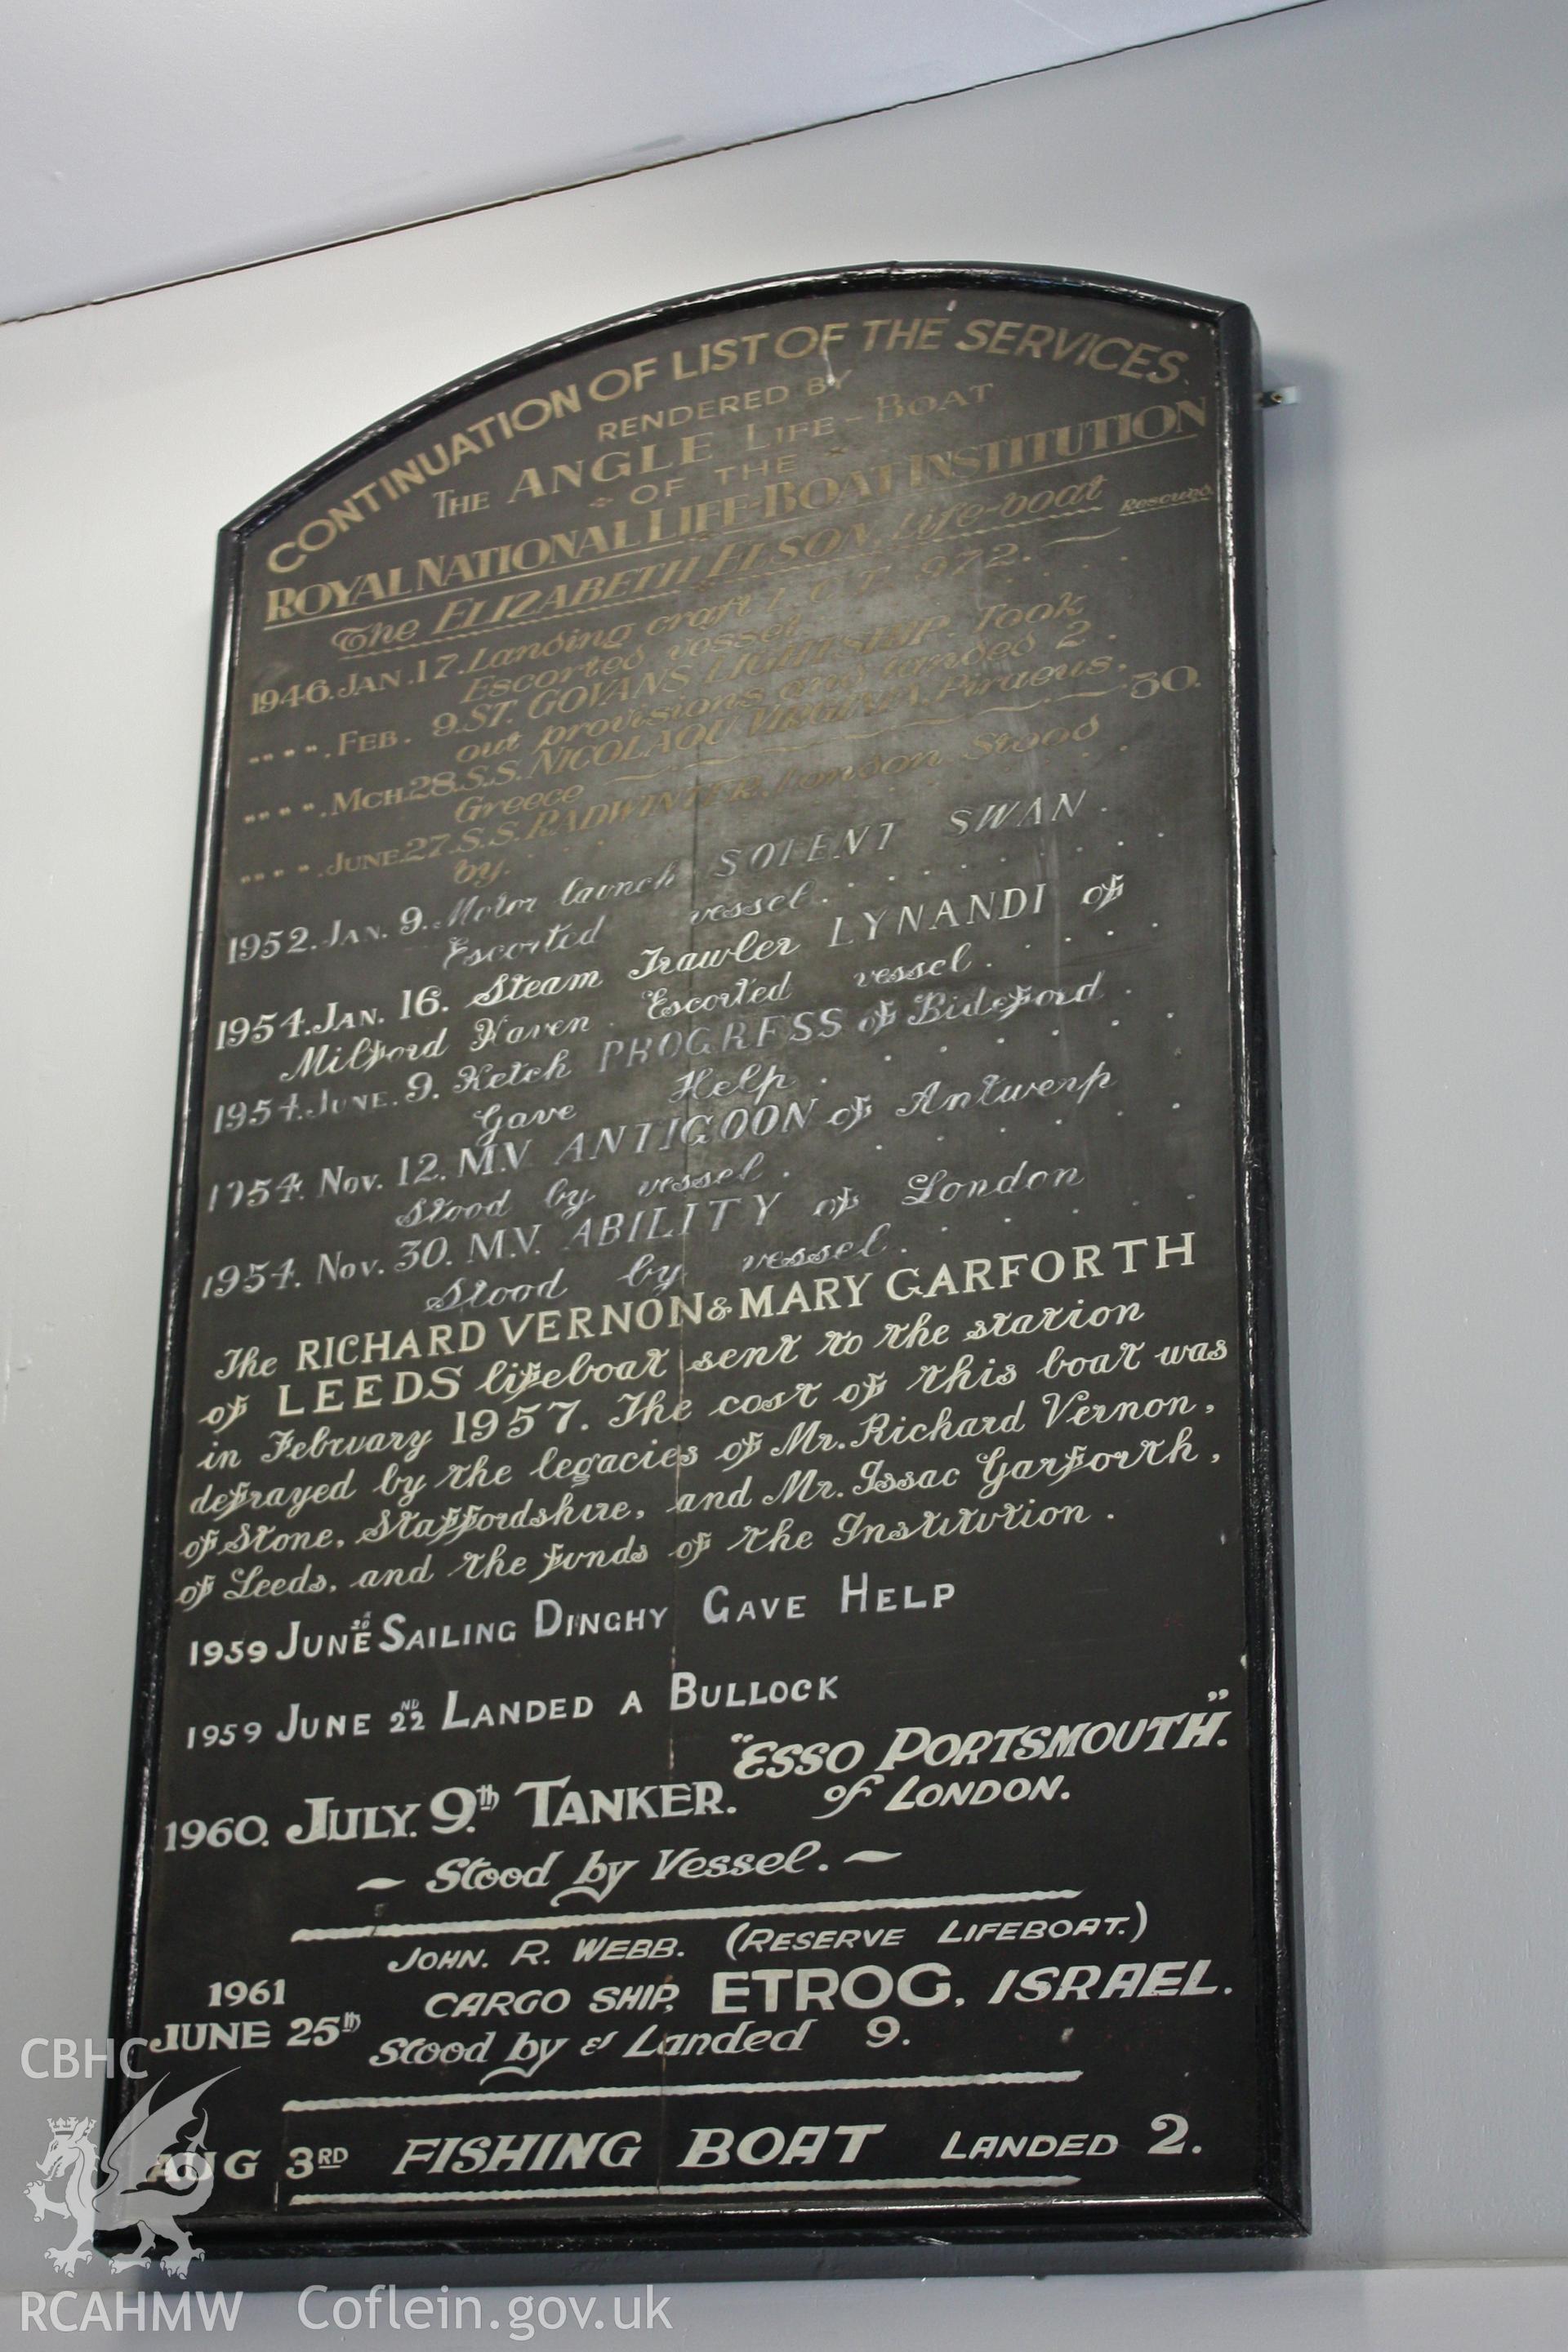 CONTINUATION OF LIST OF THE SERVICES.
RENDERED BY
THE ANGLE LIFE-BOAT
OF THE
ROYAL NATIONAL LIFE-BOAT INSTITUTION
The ELIZABETH ELSON, Life-boat Rescued.
1946. JAN. 17. Landing craft L.C.T. 972.
Escorted vessel
" " ". FEB. 9. ST. GOVANS LIGHTSHIP. Took
out provisions and landed 2.
" " ". MCH. 28. S.S. NICOLAOU VIRGINIA, Piraeus,
Greece 30.
" " ". JUNE. 27. S.S. RADWINTER, London Stood
by.
1952. JAN. 9. Motor launch SOLENT SWAN.
Escorted vessel.
1954. JAN. 16. Steam Trawler LYNANDI of
Milford Haven. Escorted vessel.
1954. JUNE. 9. Ketch PROGRESS of Bideford.
Gave Help.
1954. NOV. 12. M.V ANTIGOON of Antwerp
Stood by vessel.
1954. NOV. 30. M.V. ABILITY of London
Stood by vessel.
The RICHARD VERNON & MARY GARFORTH
of LEEDS lifeboat sent to the station
in February 1957. The cost of this boat was
defrayed by the legacies of Mr. Richard Vernon,
of Stone, Staffordshire, and Mr. Issac Garforth,
of Leeds, and the funds of the Institution.
1959 JUNE 20 SAILING DINGHY GAVE HELP
1959 JUNE 22ND LANDED A BULLOCK
1960. JULY. 9.th TANKER. "ESSO PORTSMOUTH."
of LONDON.
~ Stood by Vessel. ~
JOHN. R. WEBB. (RESERVE LIFEBOAT.)
1961
JUNE 25th CARGO SHIP, ETROG, ISRAEL.
Stood by & Landed 9.
AUG 3RD FISHING BOAT LANDED 2.
CBHC
RCAHMW Coflein.gov.uk